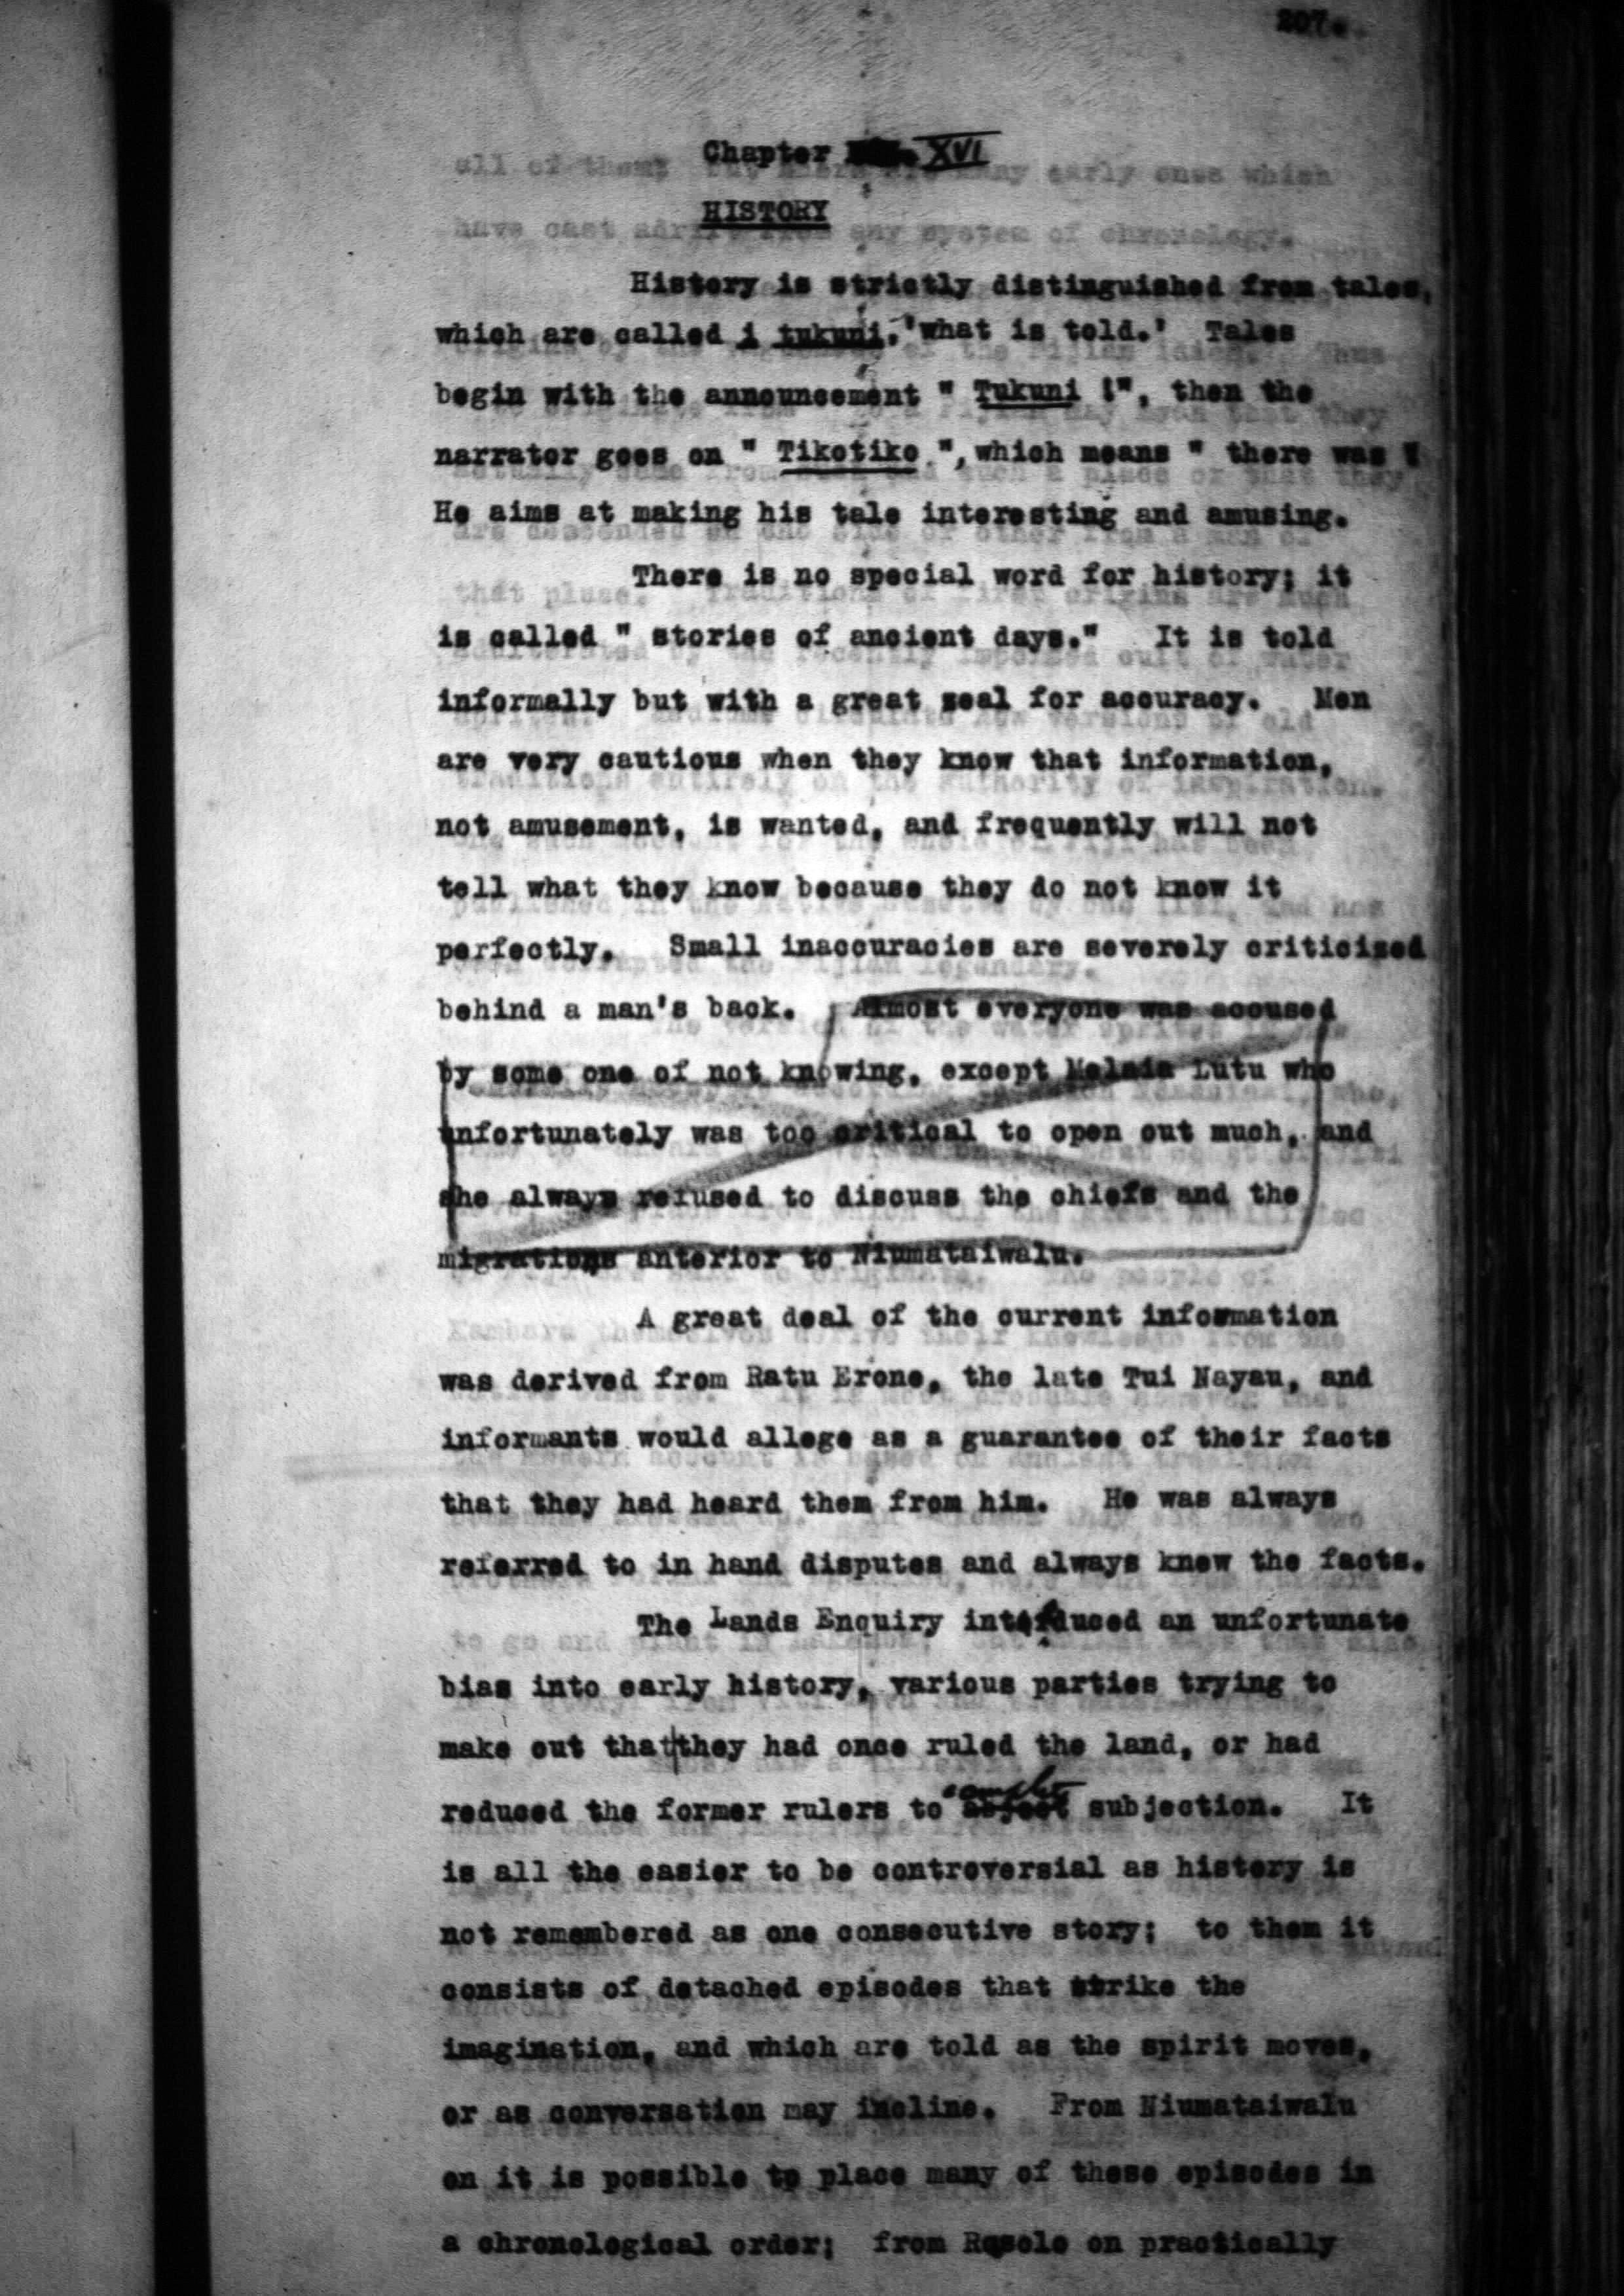 207.
Chapter XVI
HISTORY
History is strictly distinguished from tales,
which are called i tukuni, 'what is told.' Tales
begin with the announcement " Tukuni !", then the
narrator goes on " Tikotiko ", which means " there was "
He aims at making his tale interesting and amusing.
There is no special word for history; it
is called " stories of ancient days." It is told
informally but with a great zeal for accuracy. Men
are very cautious when they know that information,
not amusement, is wanted, and frequently will not
tell what they know because they do not know it
perfectly. Small inaccuracies are severely criticized
behind a man's back. Almost everyone was accused
by some one of not knowing, except Melaia Lutu who
unfortunately was too critical to open out much, and
she always refused to discuss the chiefs and the
migrations anterior to Niumataiwalu.
A great deal of the current information
was derived from Ratu Erone, the late Tui Nayau, and
informants would allege as a guarantee of their facts
that they had heard them from him. He was always
referred to in hand disputes and always knew the facts.
The Lands Enquiry introduced an unfortunate
bias into early history, various parties trying to
make out that they had once ruled the land, or had
reduced the former rulers to complete abject subjection. It
is all the easier to be controversial as history is
not remembered as one consecutive story; to them it
consists of detached episodes that strike the
imagination, and which are told as the spirit moves,
or as conversation may incline. From Niumataiwalu
on it is possible to place many of these episodes in
a chronological order; from Rasolo on practically